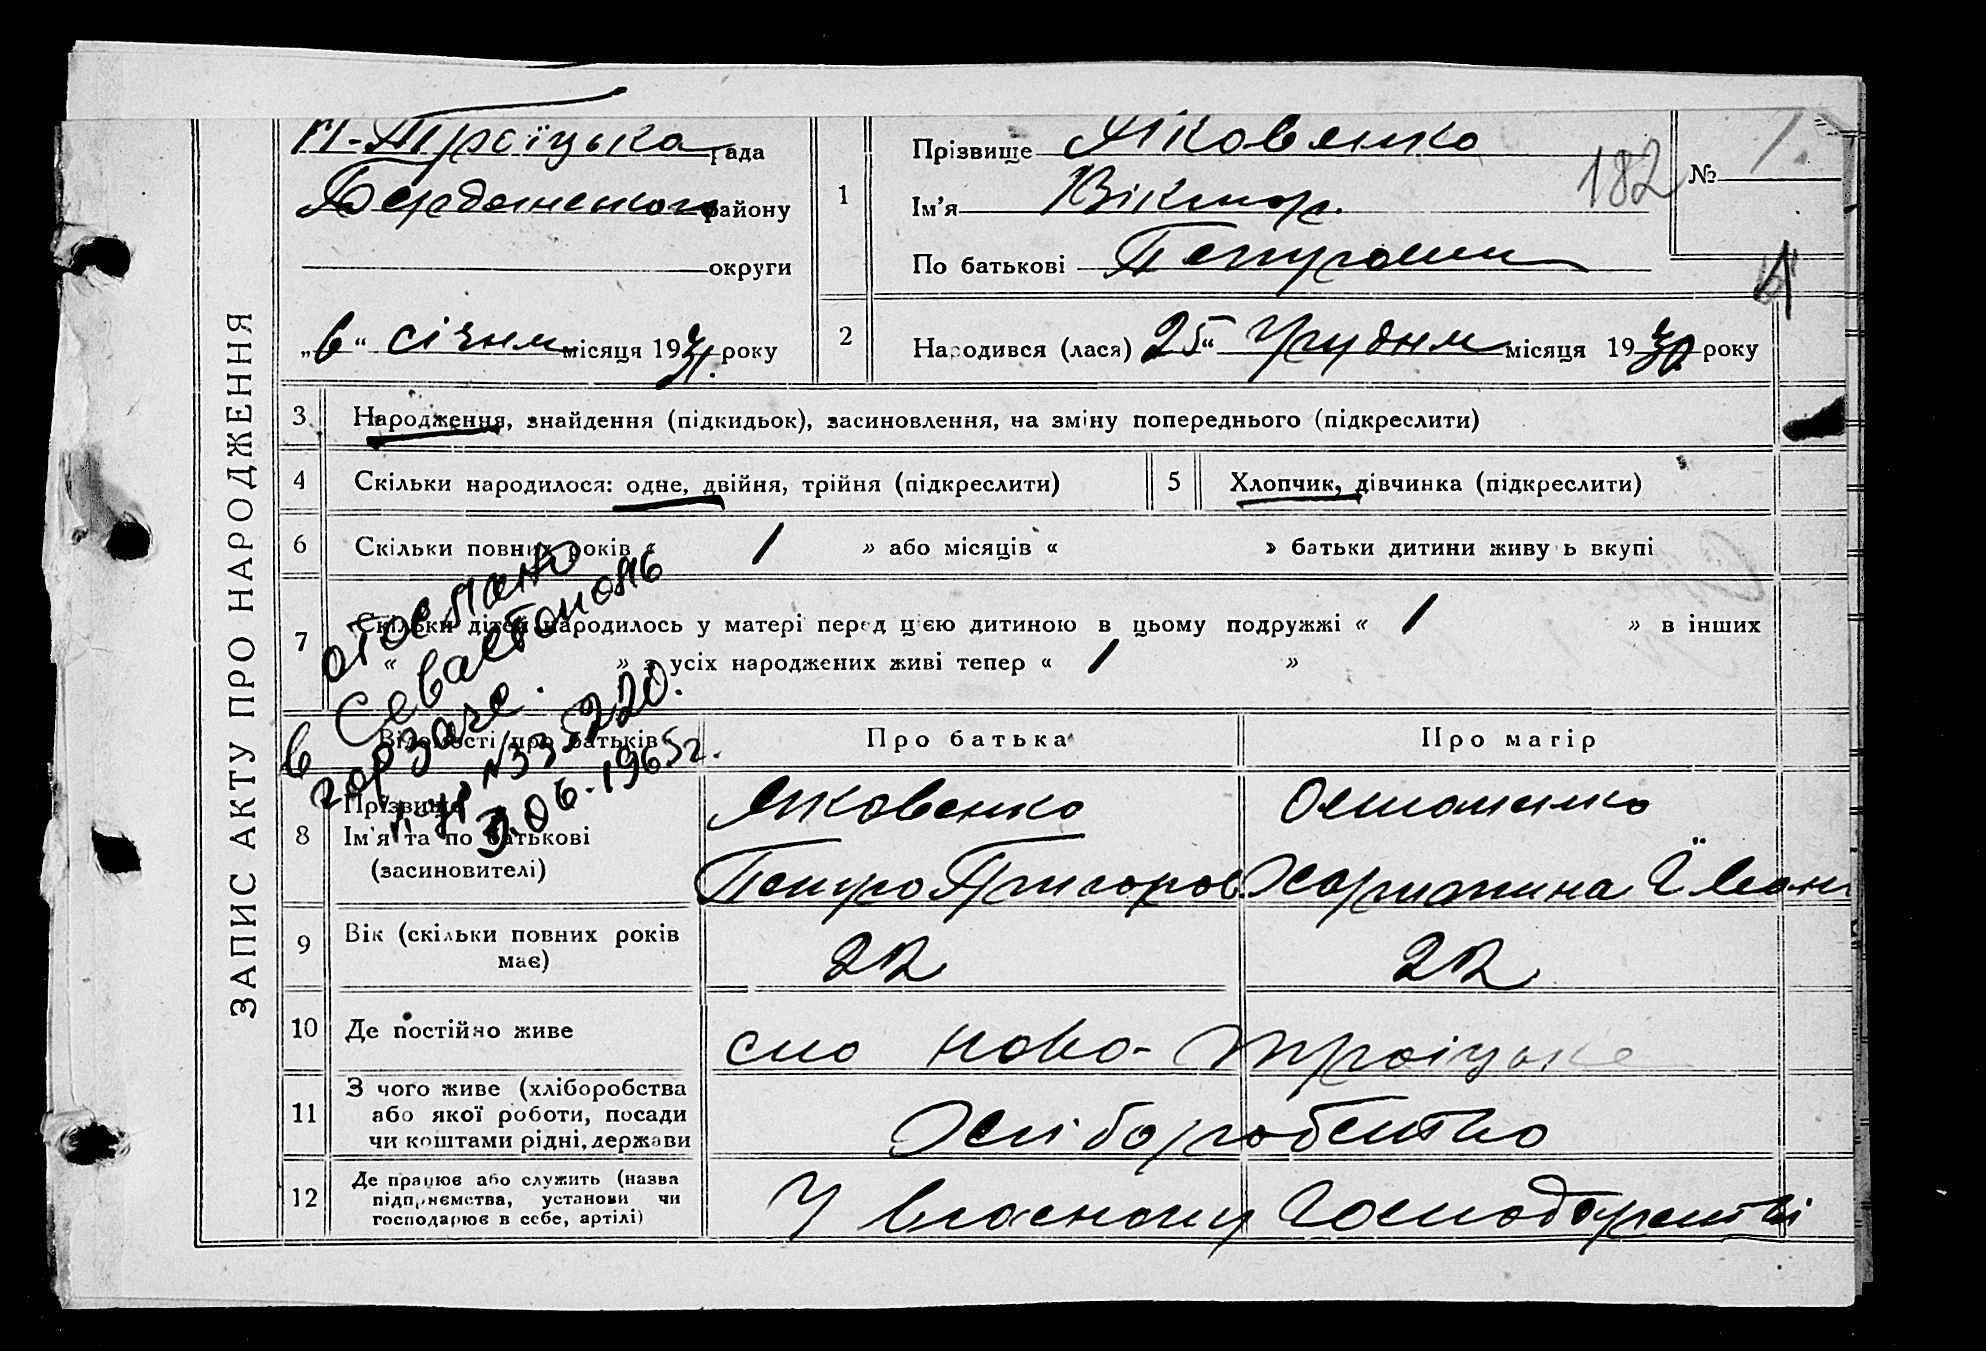 ЗАПИС АКТУ ПРО НАРОДЖЕННЯ
Н-Троїцька рада
Бердянського району
округи
„6“ січня місяця 1931 року
1 Прізвище Яковенко
Ім'я Віктор.
По батькові
182
№ 1
2 Народився (лася) 25“ грудня місяця 1930 року
3 Народження, знайдення (підкидьок), засиновлення, на зміну попереднього (підкреслити)
4 Скільки народилося: одне, двійня, трійня (підкреслити)
5 Хлопчик, дівчинка (підкреслити)
6 Скільки повних років « 1 » або місяців « » батьки дитини живуть вкупі
7 Скільки дітей народилось у матері перед цією дитиною в цьому подружжі « 1 » в інших
« » з усіх народжених живі тепер « 1 »
отослано
в Севастополь
горзагс.
№ 335220.
3.06.1965г.
Відомості про батьків
Про батька
Про матір
8 Прізвище
Ім'я та по батькові
(засиновителі)
Яковенко
Петро Григоров
Остапенко
Харитина Їван
9 Вік (скільки повних років
має)
22
22
10 Де постійно живе
село Ново-Троіцьке
11 З чого живе (хліборобства
або якої роботи, посади
чи коштами рідні, держави
Хліборобство
12 Де працює або служить (назва
підприємства, установи чи
господарює в себе, артілі)
У власному господарстві